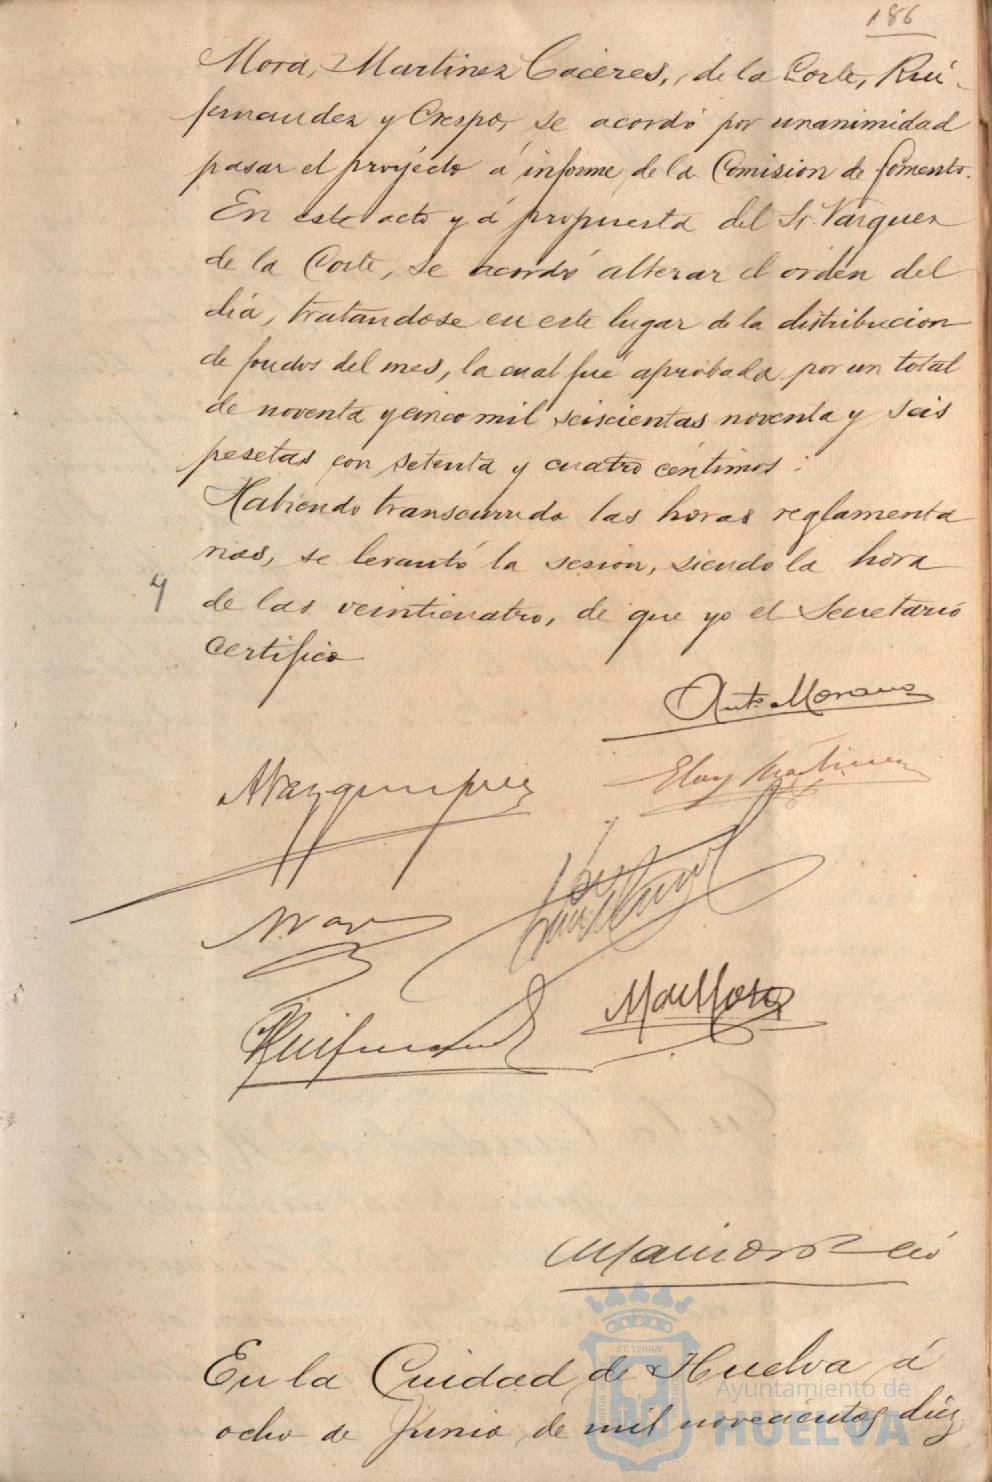 186
Mora, Martinez Caceres, de la Corte, Rui-
fernandez y Crespo, se acordó por unanimidad
pasar el proyécto á informe de la Comision de fomento.
En este acto y á propuesta del Sr. Vazquez
de la Corte, se acordó alterar el orden del
dia, tratandose en este lugar de la distribucion
de fondos del mes, la cual fué aprobada por un total
de noventa y cinco mil seiscientas noventa y seis
pesetas con setenta y cuatro céntimos.
Habiendo transcurrido las horas reglamenta
rias, se levantó la sesion, siendo la hora
de las veinticuatro, de que yo el Secretario
certifico
Anto. Moreno
Eloy Martinez
En la Ciudad de Huelva á
ocho de Junio de mil novecientos diez
ET TERRÆ
Ayuntamiento de
HUELVA